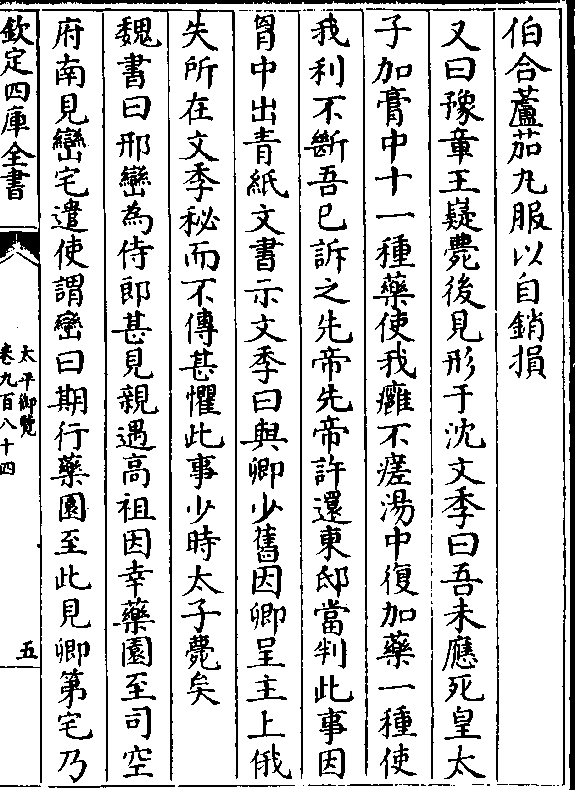 伯合蘆茹丸服以自銷損
又曰豫章王嶷薨後見形于沈文季曰吾未應死皇太
子加膏中十一種藥使我癰不瘥湯中復加藥一種使
我利不斷吾已訴之先帝先帝許還東邸當判此事因
胷中出青紙文書示文季曰與卿少舊因卿呈主上俄
失所在文季秘而不傳甚懼此事少時太子薨矣
魏書曰邢巒為侍郎甚見親遇高祖因幸藥園至司空
府南見巒宅遣使謂巒曰期行藥園至此見卿第宅乃
欽定四庫全書
太平御覽
卷九百八十四
五